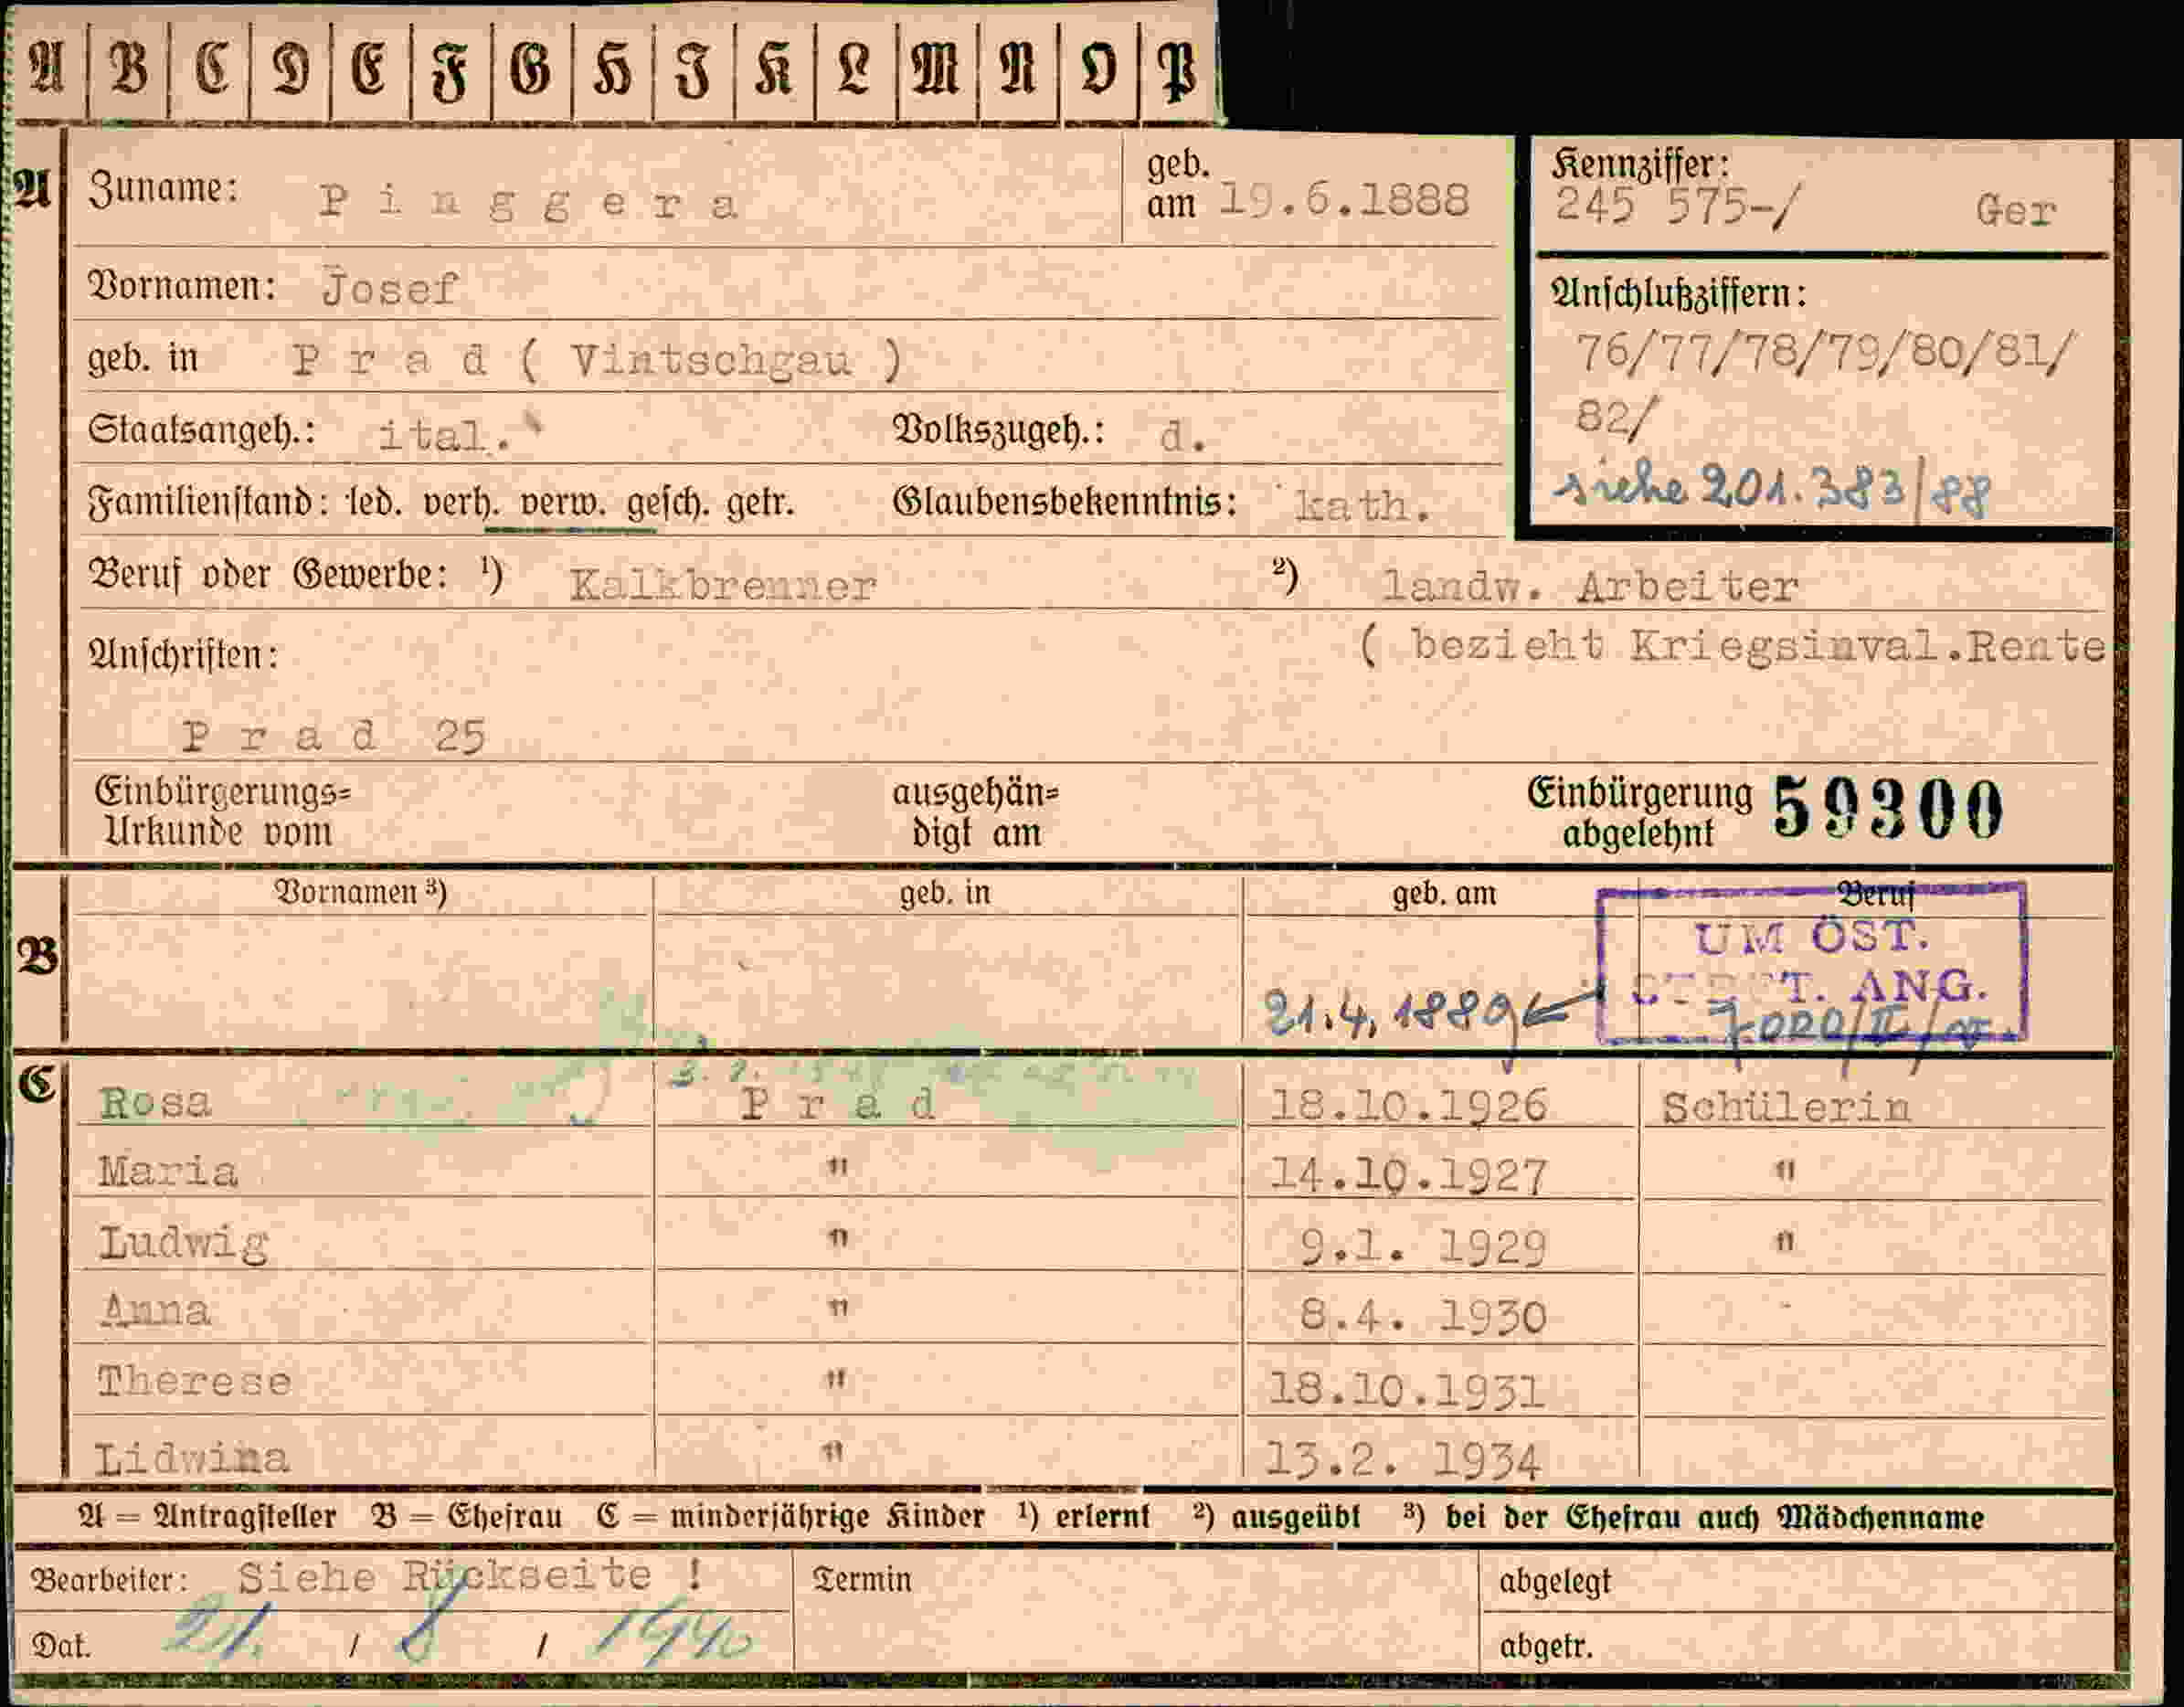 A B C D E F G H I K L M N O P
A Zuname: Pinggera geb. am 19.6.1888
Kennziffer:
245 575-/ Ger
Vornamen: Josef
Anschlußziffern:
76/77/78/79/80/81/
82/
siehe 201.383/88
geb. in Prad ( Vintschgau )
Staatsangeh.: ital. Volkszugeh.: d.
Familienstand: led. verh. verw. gesch. getr. Glaubensbekenntnis: kath.
Beruf oder Gewerbe: ¹) Kalkbrenner ²) landw. Arbeiter
( bezieht Kriegsinval.Rente
Anschriften:
Prad 25
Einbürgerungs=
Urkunde vom
ausgehän=
digt am
Einbürgerung
abgelehnt
59300
Vornamen ³) geb. in geb. am Beruf
B
UM ÖST.
T. ANG.
21.4.1889
C
Rosa Prad 18.10.1926 Schülerin
Maria " 14.10.1927 "
Ludwig " 9.1. 1929 "
Anna " 8.4. 1930
Therese " 18.10.1931
Lidwina " 13.2. 1934
A = Antragsteller B = Ehefrau C = minderjährige Kinder ¹) erlernt ²) ausgeübt ³) bei der Ehefrau auch Mädchenname
Bearbeiter: Siehe Rückseite ! Termin abgelegt
Dat. 21. / 8 / 1940 abgetr.